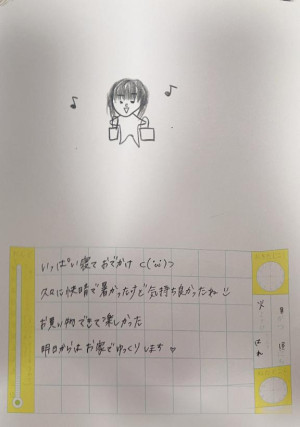 いっぱい寝ておでかけ ⊂('ω')⊃
久々に快晴で暑かったけど気持ち良かったね ☺
お買い物できて楽しかった
明日からはお家でゆっくりします ♡
火
はれ